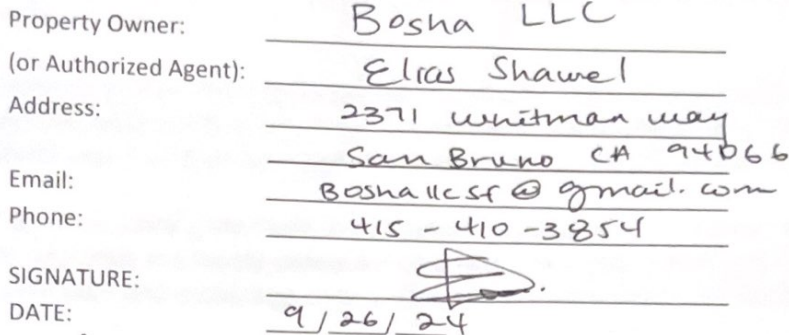 Property Owner: Bosha LLC
(or Authorized Agent): Elias Shawel
Address: 2371 whitman way
San Bruno CA 94066
Email: Boshallcsf@gmail.com
Phone: 415-410-3854
SIGNATURE:
DATE: 9/26/24